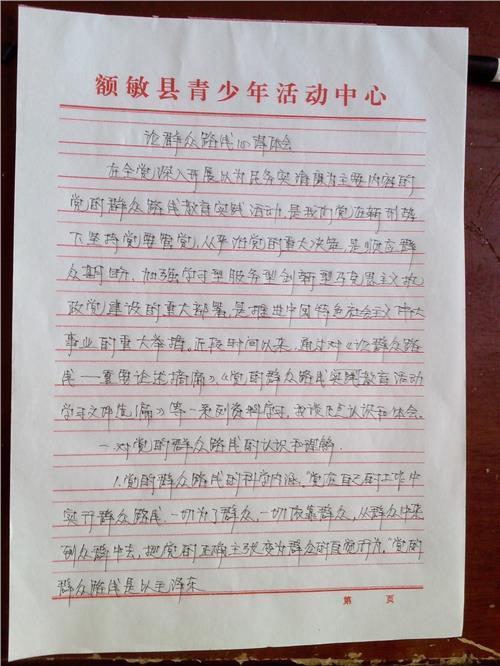 额敏县青少年活动中心
论群众路线心得体会
在全党深入开展以为民务实清廉为主要内容的
党的群众路线教育实践活动,是我们党在新形势
下坚持党要管党,从严治党的重大决策,是顺应群
众期盼、加强学习型服务型创新型马克思主义执
政党建设的重大部署,是推进中国特色社会主义伟大
事业的重大举措。近段时间以来,通过对《论群众路
线——重要论述摘编》《党的群众路线实践教育活动
学习文件选编》等一系列资料学习,我谈几点认识和体会。
一、对党的群众路线的认识和理解。
1.党的群众路线的科学内涵。党在自己的工作中
实行群众路线,一切为了群众,一切依靠群众,从群众中来
到众群中去,把党的正确主张变为群众的自觉行为。“党的
群众路线是以毛泽东
第 页